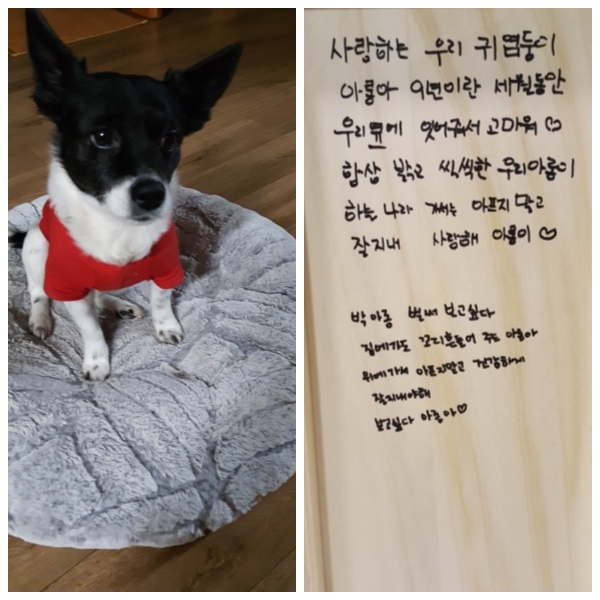 사랑하는 우리 귀염둥이
아롱아 9년이란 세월동안
우리곁에 있어줘서 고마워 ♡
항상 밝고 씩씩한 우리아롱이
하늘나라 가서는 아프지 말고
잘지내 사랑해 아롱이 ♡
박아롱 벌써 보고싶다
집에가도 꼬리흔들어 주는 아롱아
위에가서 아프지말고 건강하게
잘지내야해
보고싶다 아롱아♡